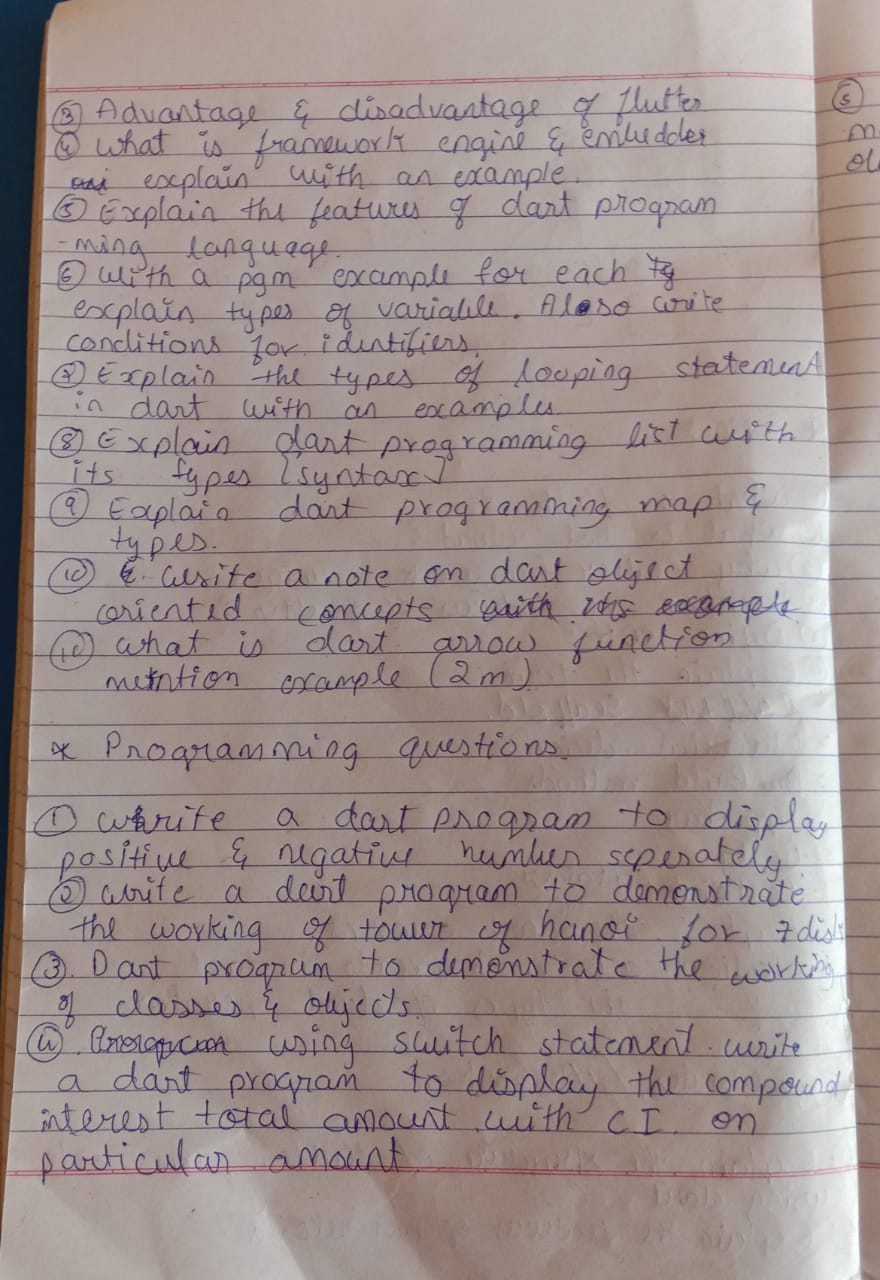 ③ Advantage & disadvantage of flutter
④ What is framework engine & embedder
explain with an example.
⑤ Explain the features of dart program
-ming language.
⑥ With a pgm example for each
explain types of variable. Also write
conditions for identifiers.
⑦ Explain the types of looping statement
in dart with an examples.
⑧ Explain dart programming list with
its types [syntax]
⑨ Explain dart programming map &
types.
⑩ Write a note on dart object
oriented concepts with its example
⑪ what is dart arrow function
mention example (2m)
* Programming questions.
① write a dart program to display
positive & negative number seperately
② write a dart program to demonstrate
the working of tower of hanoi for 7 disk
③. Dart program to demonstrate the working
of classes & objects.
④. using switch statement write
a dart program to display the compound
interest total amount with CI on
particular amount
⑤
m